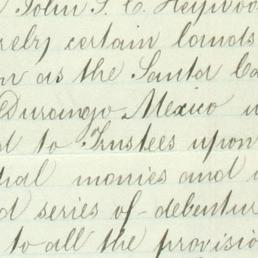 John S. C. Heywoo
ereby certain lands
n as the Santa Ca
Durango Mexico u
d to Trustees upon
tial monies and
d series of debentur
to all the provisio